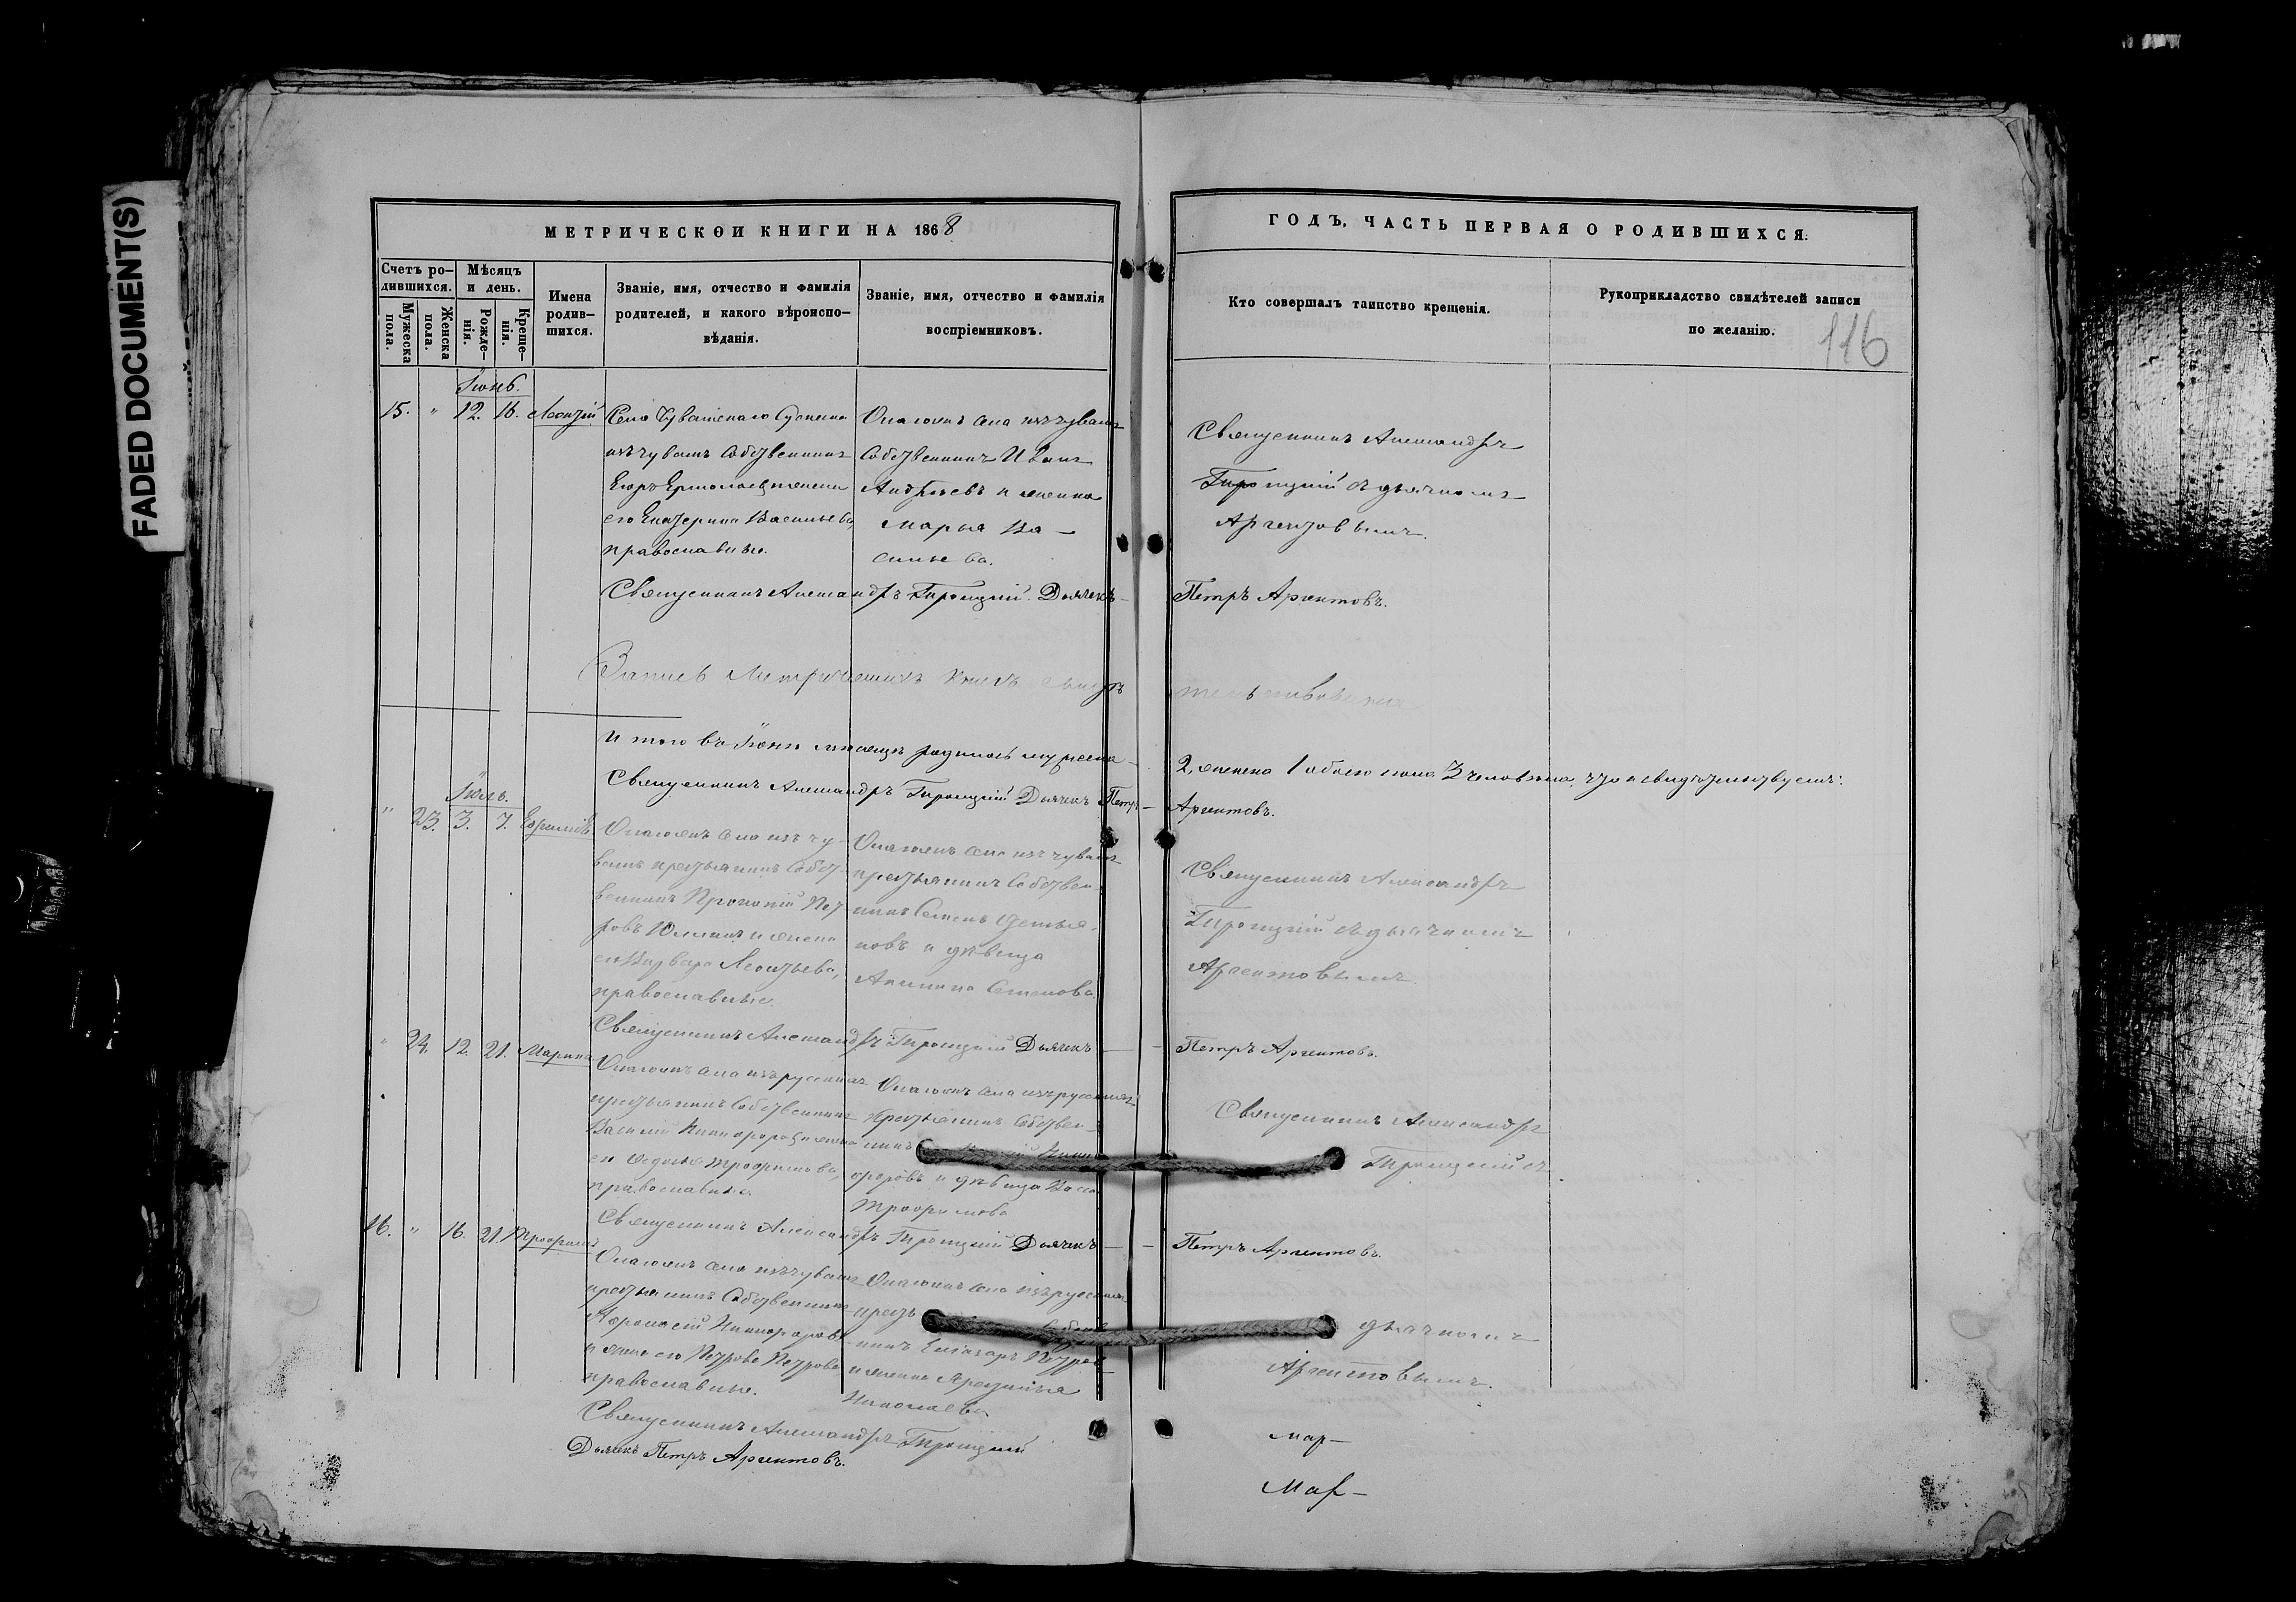 FADED DOCUMENT(S)
МЕТРИЧЕСКОЙ КНИГИ НА 1868
ГОДЪ, ЧАСТЬ ПЕРВАЯ О РОДИВШИХСЯ.
116
Счетъ ро-
дившихся.
Мужеска
пола.
Женска
пола.
Мѣсяцъ
и день.
Рожде-
нія.
Креще-
нія.
Имена
родив-
шихся.
Званіе, имя, отчество и фамилія
родителей, и какого вѣроиспо-
вѣданія.
Званіе, имя, отчество и фамилія
воспріемниковъ.
Кто совершалъ таинство крещенія.
Рукоприкладство свидѣтелей записи
по желанію.
Іюнь.
15. " 12. 16. Леонтій
Села Чувашскаго
изъ чувашъ Собственникъ
Егоръ Ермолаевъ и жена
его Екатерина Васильева,
православные.
Онагожъ села изъ чувашъ
Собственникъ Иванъ
Андреевъ и жена
Марья Ва-
сильева.
Священникъ Александръ
Троицкій съ дьячкомъ
Аргентовымъ.
Священникъ Александръ Троицкій. Дьячекъ
Петръ Аргентовъ.
Запись Метрическихъ книгъ
Итого въ Іюнѣ мѣсяцѣ родилось мужеска
2, женска 1 обоего пола 3 человека, что и свидѣтельствуемъ:
Священникъ Александръ Троицкій Дьячекъ Петръ
Аргентовъ.
Іюль.
" 23. 3. 7.
Онагожъ села изъ чу-
вашъ крестьянинъ Собст-
венникъ Прокопій Пет-
ровъ и жена
его Варвара Леонтьева,
православные.
Онагожъ села изъ чувашъ
крестьянинъ Собствен-
никъ Семенъ Демья-
новъ и дѣвица
Акилина Семенова.
Священникъ Александръ
Троицкій съ дьячкомъ
Аргентовымъ.
Священникъ Александръ Троицкій Дьячекъ
Петръ Аргентовъ.
" 24. 12. 21. Марина
Онагожъ села изъ русскихъ
крестьянинъ Собственникъ
Василій Никифоровъ и жена
его Трофимова,
православные.
Онагожъ села изъ русскихъ
крестьянинъ Собствен-
никъ Ники-
форовъ и дѣвица
Трофимова
Священникъ Александръ
Троицкій съ
Священникъ Александръ Троицкій Дьячекъ
Петръ Аргентовъ.
16. " 16. 21. Трофимъ
Онагожъ села изъ чувашъ
крестьянинъ Собственникъ
Афонасій Никифоровъ
и жена его Петрова,
православные.
Онагожъ села изъ русскихъ
никъ Елизаръ Петровъ
и жена
Николаева
дьячкомъ
Аргентовымъ.
Священникъ Александръ Троицкій
Дьячекъ Петръ Аргентовъ.
Мар-
Мар-